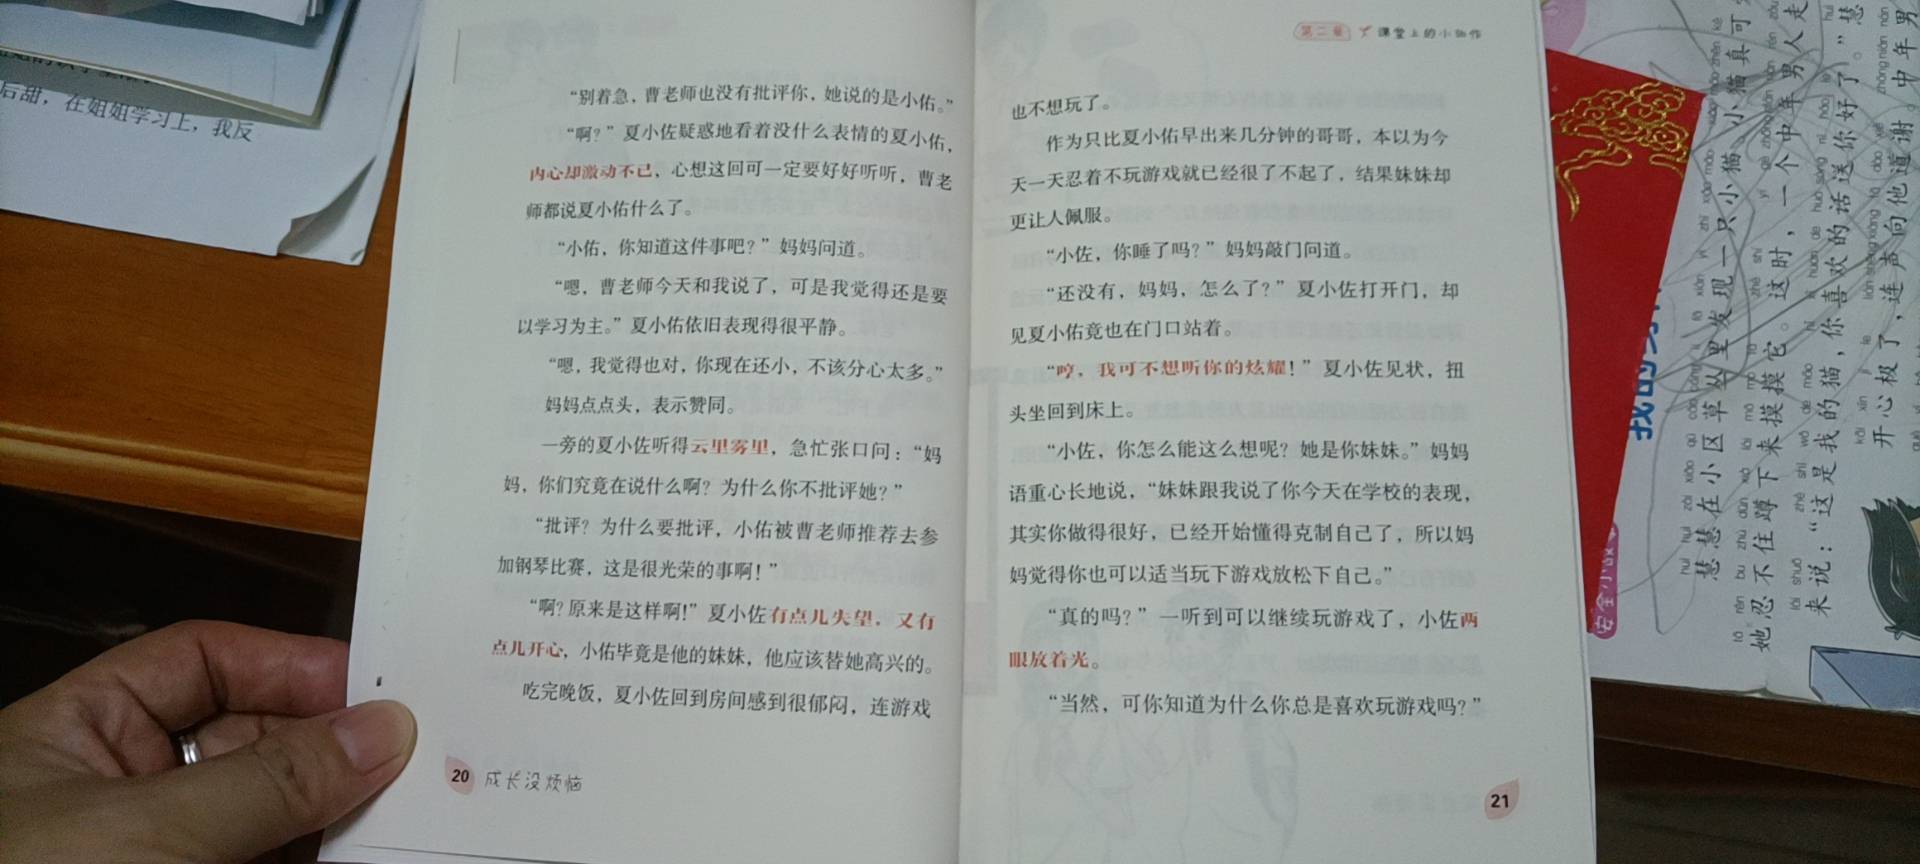 后甜，在姐姐学习上，我反
“别着急，曹老师也没有批评你，她说的是小佑。”
“啊？”夏小佐疑惑地看着没什么表情的夏小佑，
内心却激动不已，心想这回可一定要好好听听，曹老
师都说夏小佑什么了。
“小佑，你知道这件事吧？”妈妈问道。
“嗯，曹老师今天和我说了，可是我觉得还是要
以学习为主。”夏小佑依旧表现得很平静。
“嗯，我觉得也对，你现在还小，不该分心太多。”
妈妈点点头，表示赞同。
一旁的夏小佐听得云里雾里，急忙张口问：“妈
妈，你们究竟在说什么啊？为什么你不批评她？”
“批评？为什么要批评，小佑被曹老师推荐去参
加钢琴比赛，这是很光荣的事啊！”
“啊？原来是这样啊！”夏小佐有点儿失望，又有
点儿开心，小佑毕竟是他的妹妹，他应该替她高兴的。
吃完晚饭，夏小佐回到房间感到很郁闷，连游戏
20 成长没烦恼
第二章 课堂上的小动作
也不想玩了。
作为只比夏小佑早出来几分钟的哥哥，本以为今
天一天忍着不玩游戏就已经很了不起了，结果妹妹却
更让人佩服。
“小佐，你睡了吗？”妈妈敲门问道。
“还没有，妈妈，怎么了？”夏小佐打开门，却
见夏小佑竟也在门口站着。
“哼，我可不想听你的炫耀！”夏小佐见状，扭
头坐回到床上。
“小佐，你怎么能这么想呢？她是你妹妹。”妈妈
语重心长地说，“妹妹跟我说了你今天在学校的表现，
其实你做得很好，已经开始懂得克制自己了，所以妈
妈觉得你也可以适当玩下游戏放松下自己。”
“真的吗？”一听到可以继续玩游戏了，小佐两
眼放着光。
“当然，可你知道为什么你总是喜欢玩游戏吗？”
21
慧慧在小区草丛里发现一只小猫，小猫真可
她忍不住蹲下来摸摸它。这时，一个中年男人走
来说：“这是我的猫，你喜欢的话送你好了。”慧
开心极了，连声向他道谢。中年男
安全小故